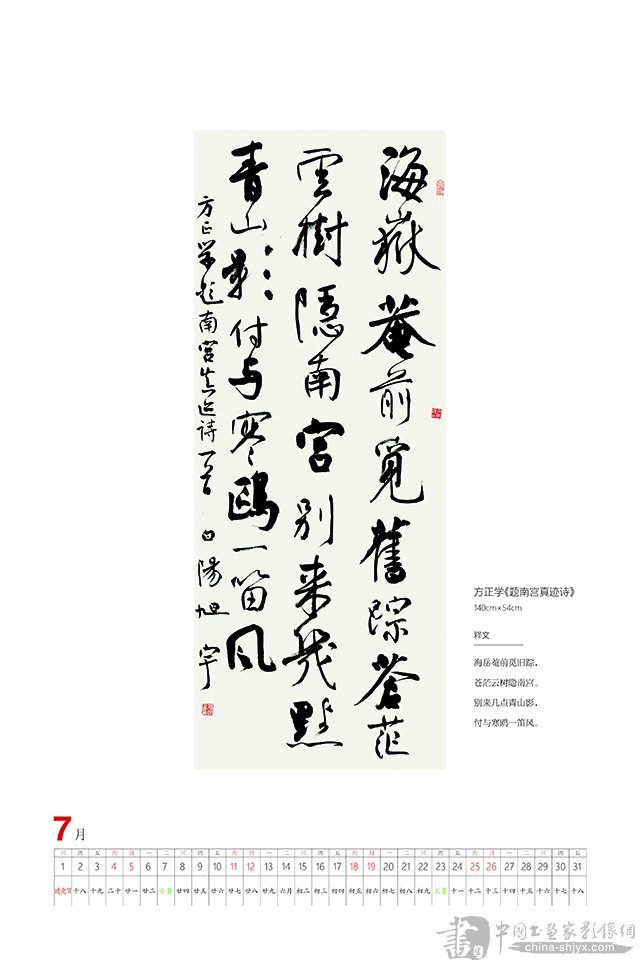 海嶽菴前覓舊踪蒼茫
雲樹隱南宮别来幾點
青山影付与寒鷗一笛风
方正学题南宫真迹诗一首 白陽旭宇
方正学《题南宫真迹诗》
140cm×54cm
释文
海岳菴前觅旧踪，
苍茫云树隐南宫。
别来几点青山影，
付与寒鸥一笛风。
7月
三 四 五 六 日 一 二 三 四 五 六 日 一 二 三 四 五 六 日 一 二 三 四 五 六 日 一 二 三 四 五
1 2 3 4 5 6 7 8 9 10 11 12 13 14 15 16 17 18 19 20 21 22 23 24 25 26 27 28 29 30 31
建党节 十八 十九 二十 廿一 廿二 小暑 廿四 廿五 廿六 廿七 廿八 廿九 六月 初二 初三 初四 初五 初六 初七 初八 初九 大暑 十一 十二 十三 十四 十五 十六 十七 十八
中國书画家影像網
china-shjyx.com